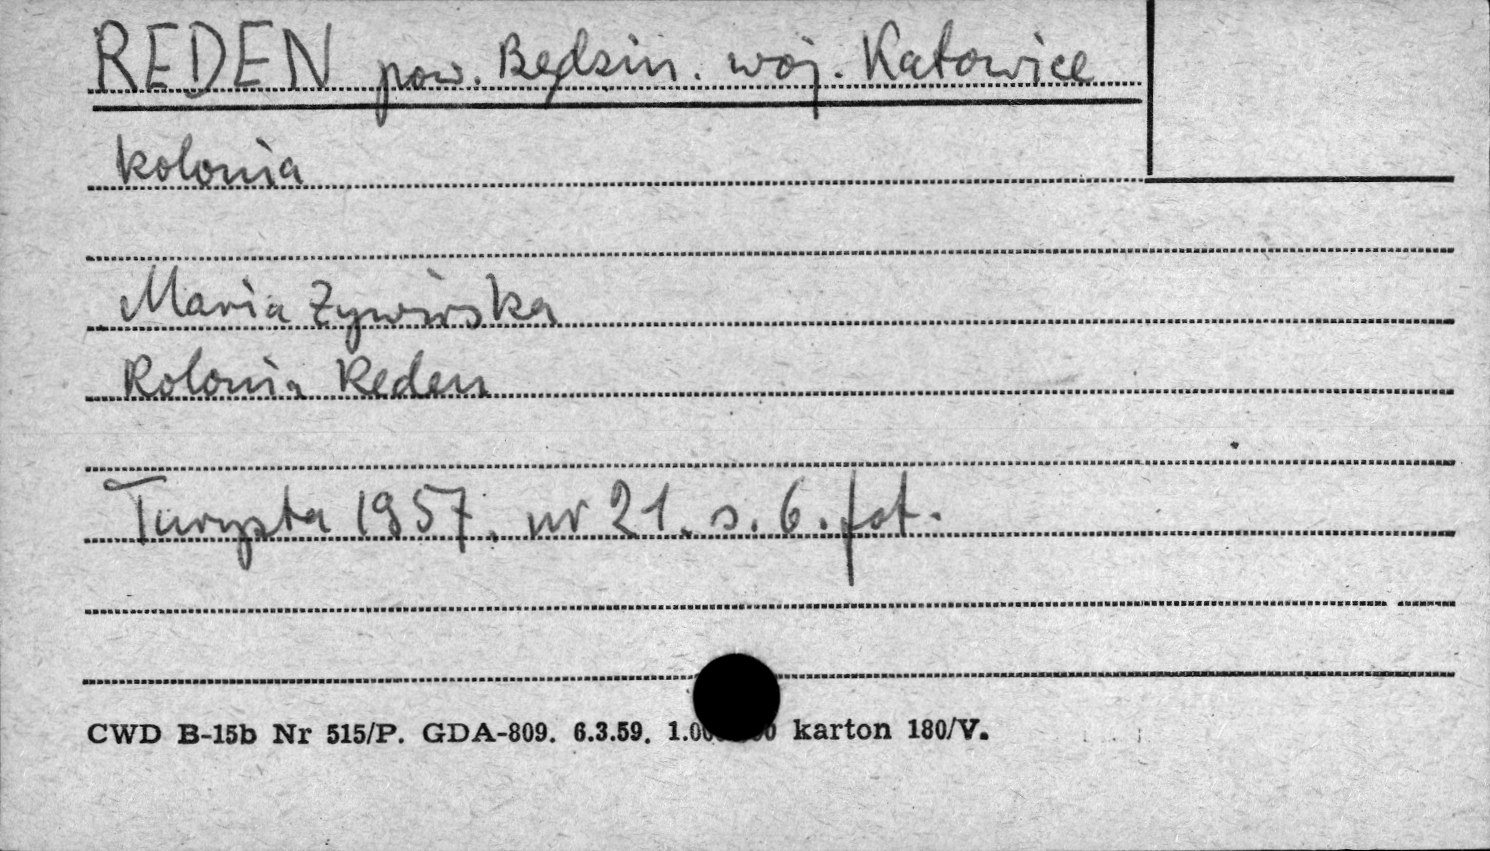 REDEN pow. Będzin. woj. Katowice
kolonia
Maria Żywirska
Kolonia Reden
Turysta 1957. nr 21. s. 6. fot.
CWD B-15b Nr 515/P. GDA-809. 6.3.59. karton 180/V.